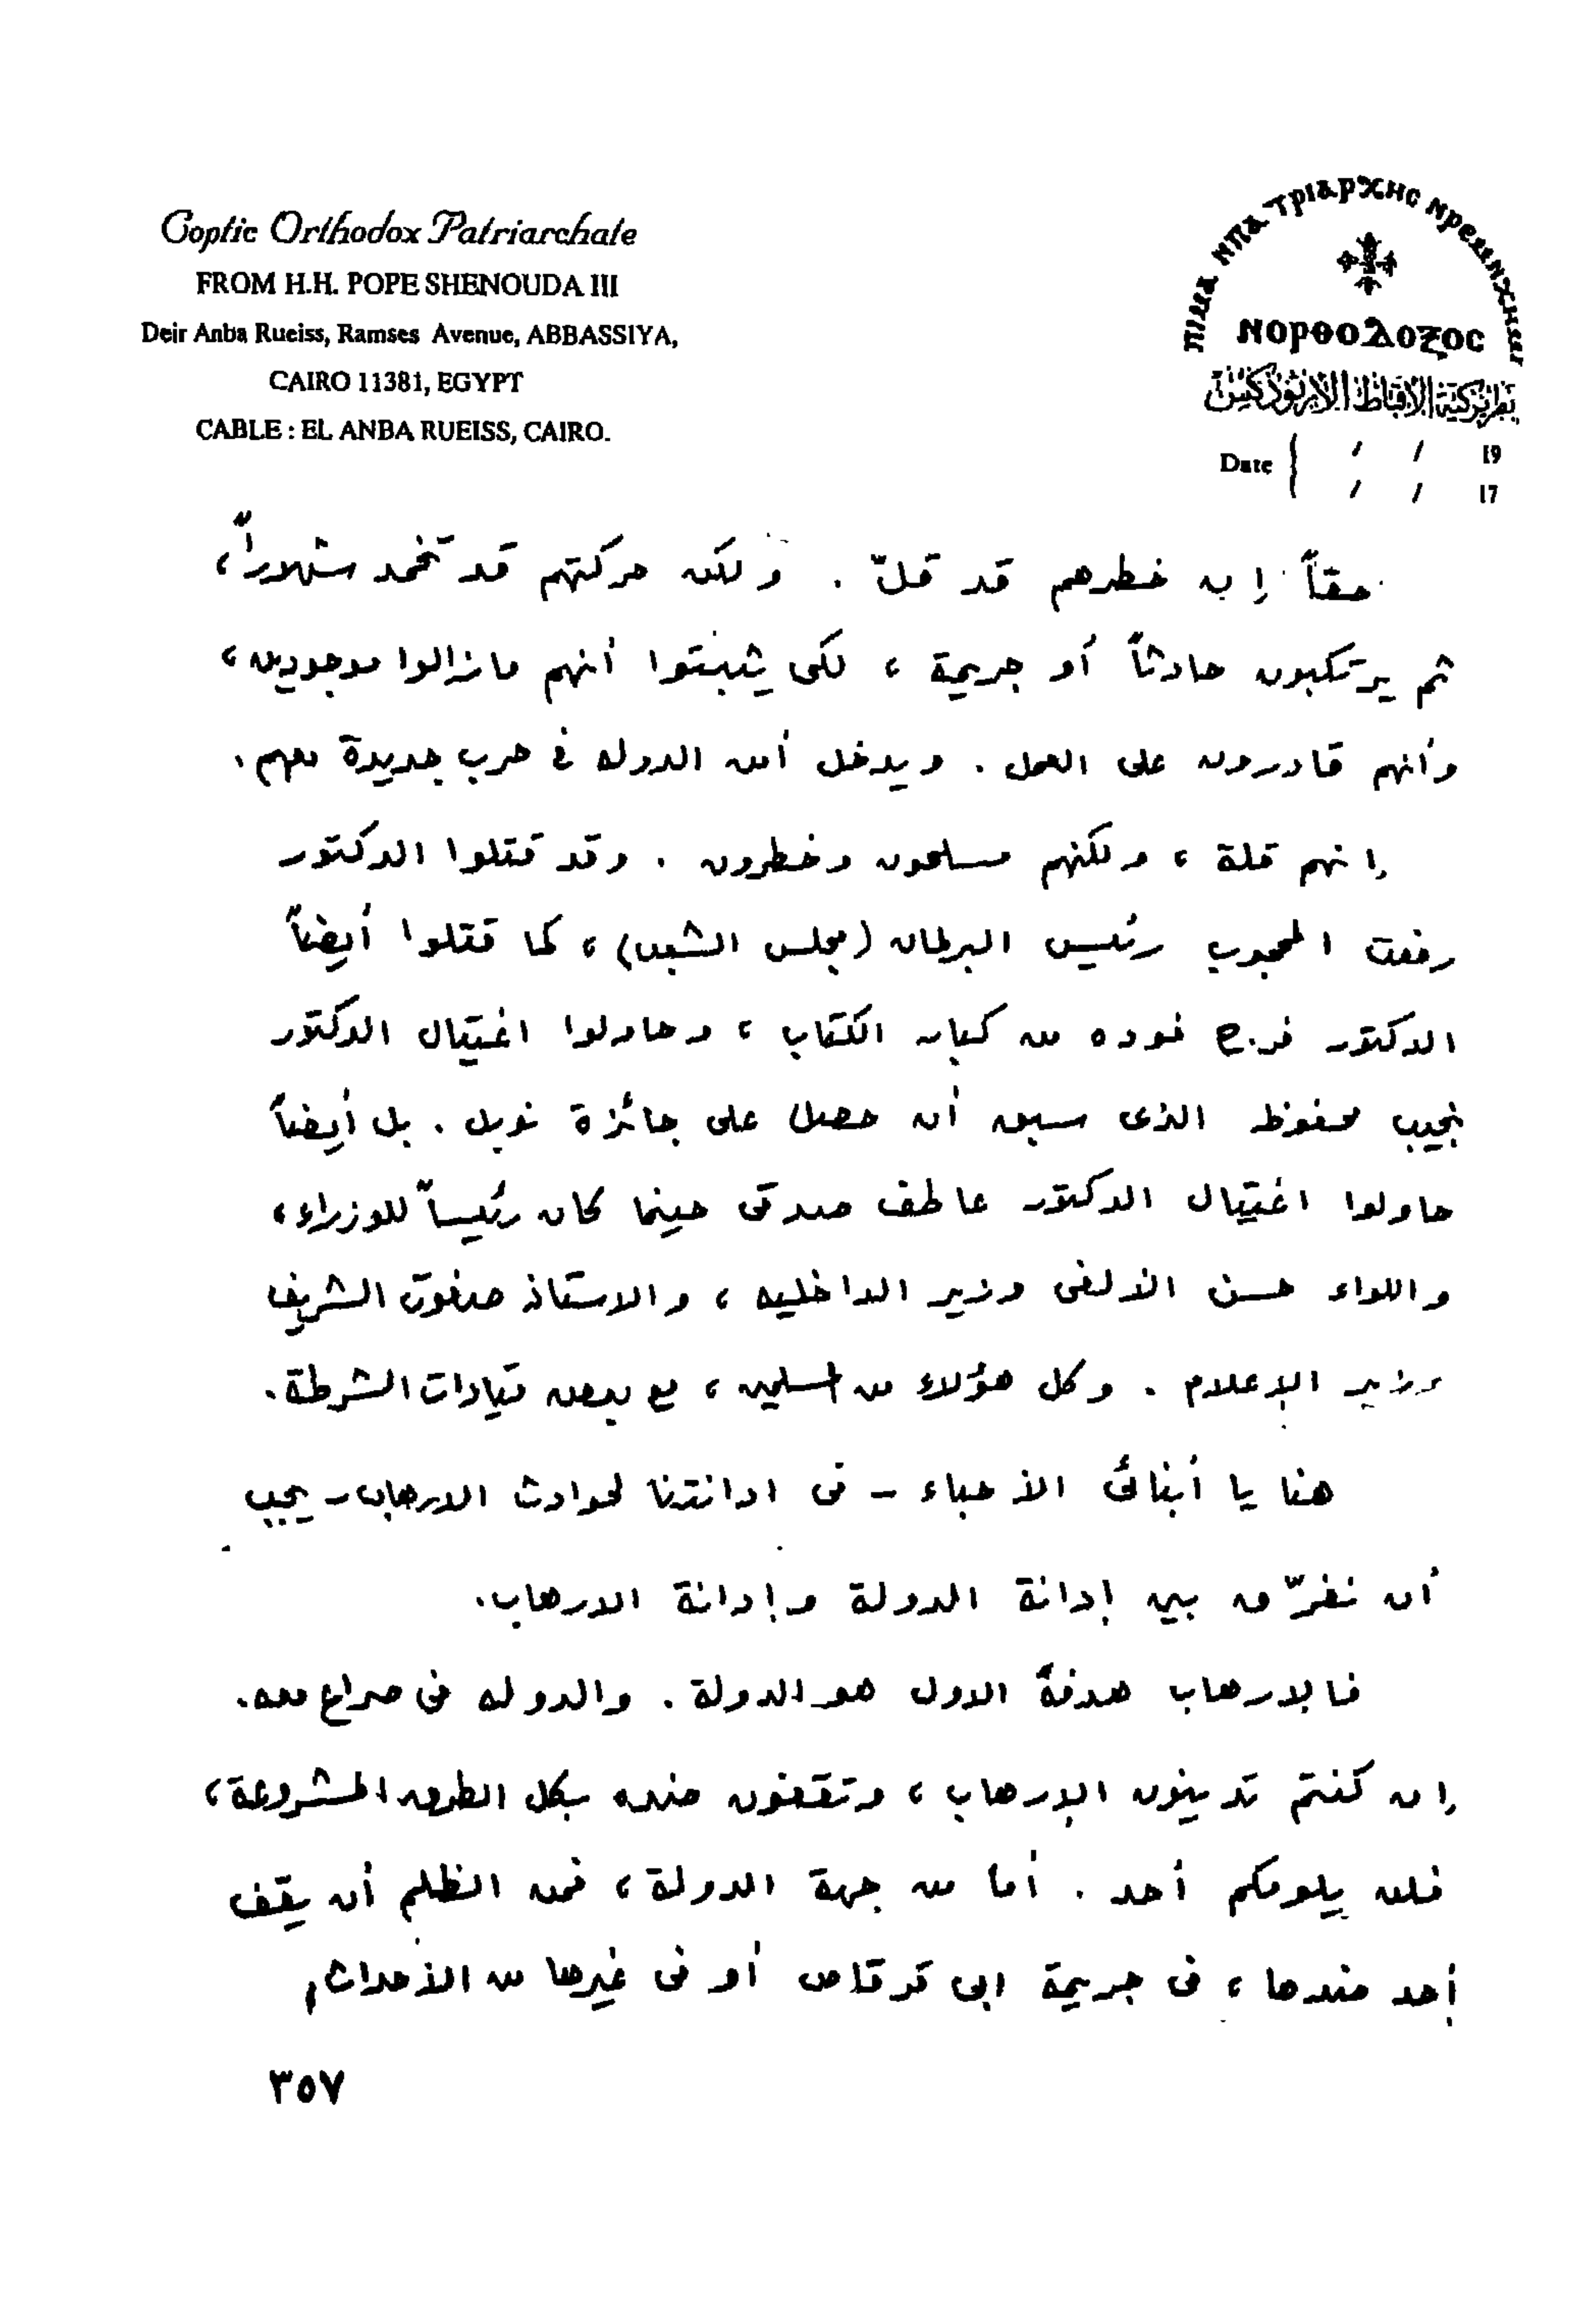 Coptic Orthodox Patriarchate
FROM H.H. POPE SHENOUDA III
Deir Anba Rueiss, Ramses Avenue, ABBASSIYA,
CAIRO 11381, EGYPT
CABLE : EL ANBA RUEISS, CAIRO.
ΠΙΜΑ ⲘΠΑΤΡΙΑΡΧΗⲤ ⲚΡⲈⲘⲚΧΗⲘⲒ
ⲚⲞⲢⲐⲞⲆⲞⲜⲞⲤ
بطريركية الأقباط الأرثوذكس
Date / / 19
/ / 17
حقاً إن خطرهم قد قلّ . ولكن حركتهم قد تخمد شهوراً ،
ثم يرتكبون حادثاً أو جريمة ، لكى يثبتوا أنهم مازالوا موجودين ،
وأنهم قادرون على العمل . ويدخل أمن الدوله فى حرب جديدة معهم .
إنهم قلة ، ولكنهم مسلحون وخطرون . وقد قتلوا الدكتور
رفعت المحجوب رئيس البرلمان (مجلس الشعب) ، كما قتلوا أيضاً
الدكتور فرج فوده من كبار الكتاب ، وحاولوا اغتيال الدكتور
نجيب محفوظ الذى سبق أن حصل على جائزة نوبل . بل أيضاً
حاولوا اغتيال الدكتور عاطف صدقى حينما كان رئيساً للوزراء ،
واللواء حسن الألفى وزير الداخليه ، والاستاذ صفوت الشريف
وزير الإعلام . وكل هؤلاء من المسلمين ، مع بعض قيادات الشرطة .
هنا يا أبنائى الأحباء - فى ادانتنا لحوادث الارهاب - يجب
أن نفرّق بين إدانة الدولة وإدانة الارهاب .
فالارهاب هدفه الاول هو الدولة . والدوله فى صراع معه .
إن كنتم تدينون الإرهاب ، وتقفون ضده بكل الطرق المشروعة ،
فلن يلومكم أحد . أما من جهة الدولة ، فمن الظلم أن يقف
أحد ضدها ، فى جريمة ابى قرقاص أو فى غيرها من الأحداث ,
٣٥٧